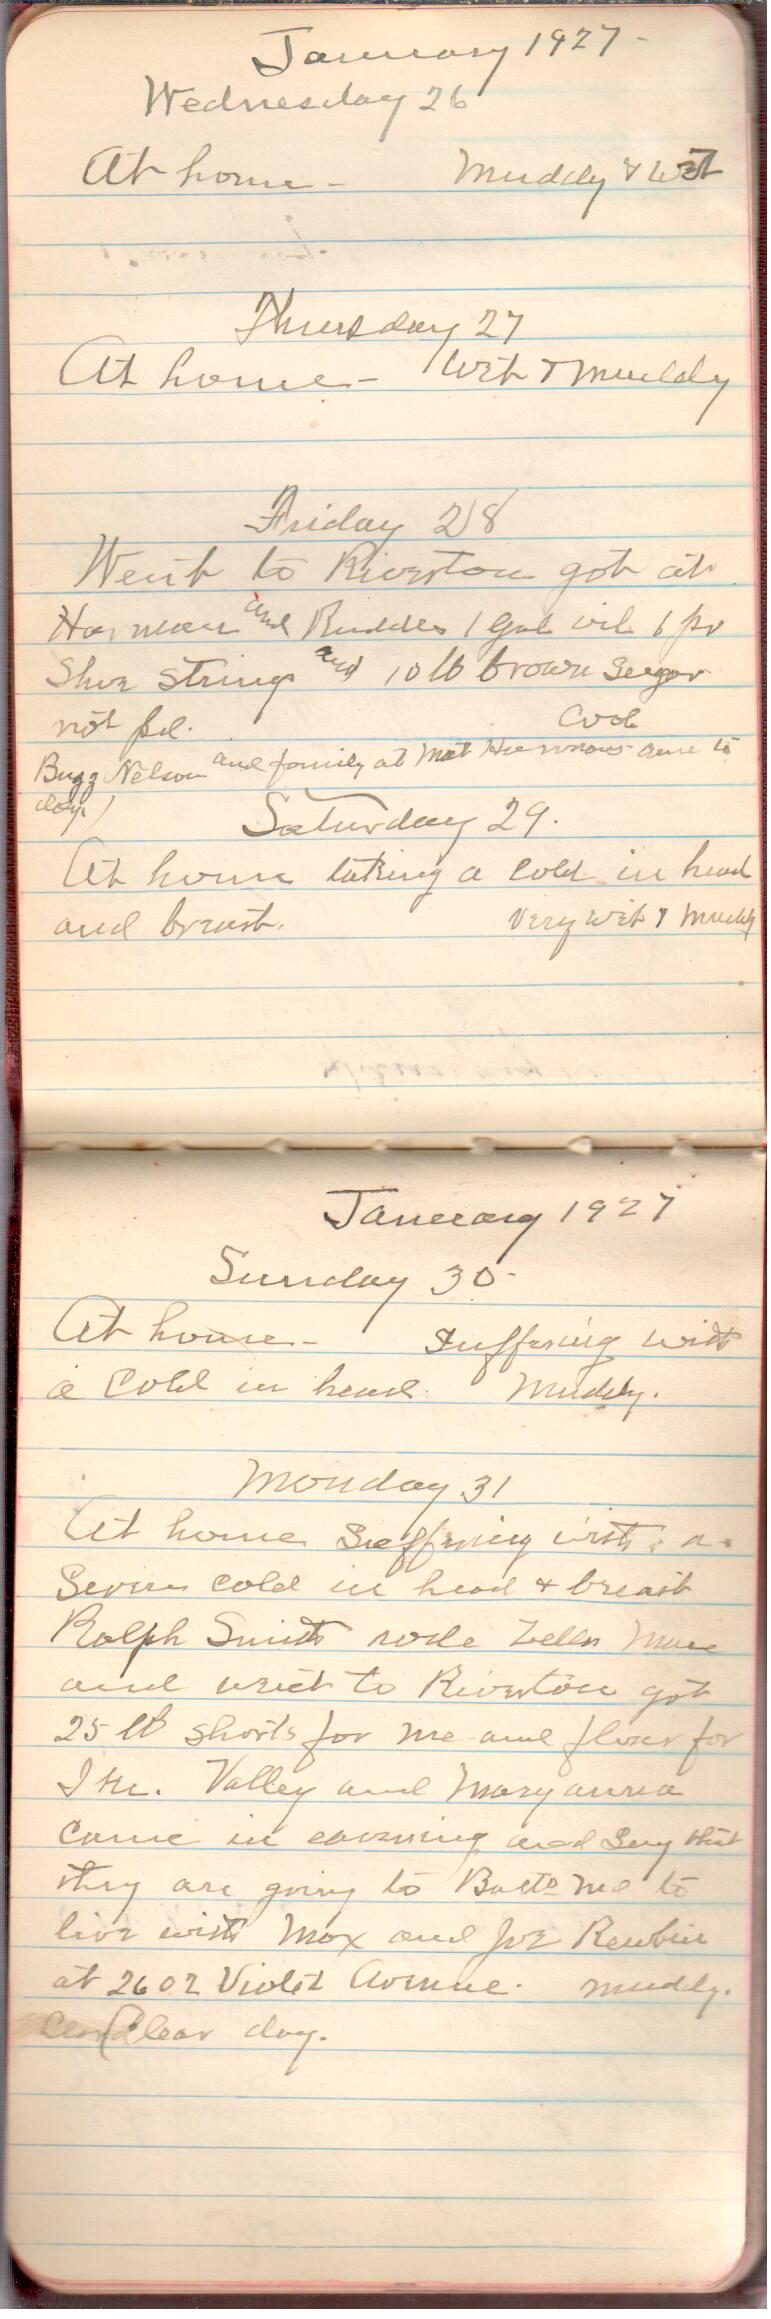 January 1927-
Wednesday 26
At home - Muddy & Wet
Thursday 27
At home - Wet & Muddy
Friday 28
Went to Riverton got at
Harmon and Rudder 1 gal oil 6 pr
Shoe strings and 10 lb brown Seugar
not pd. Cool
Bugg Nelson and family at Mat came to
day.)
Saturday 29.
At home taking a cold in head
and breast. very wet & Muddy
January 1927
Sunday 30-
At home - Suffering with
a Cold in head. Muddy.
Monday 31
At home Suffering with a
Severe cold in head & breast
Ralph Smith rode Zellers Mare
and went to Riverton got
25 lb shorts for me and flour for
Valley and Maryanna
came in evening and Say that
they are going to Balto Md to
live with Max and Joe
at 2602 Violet Avenue. muddy.
Clear day.